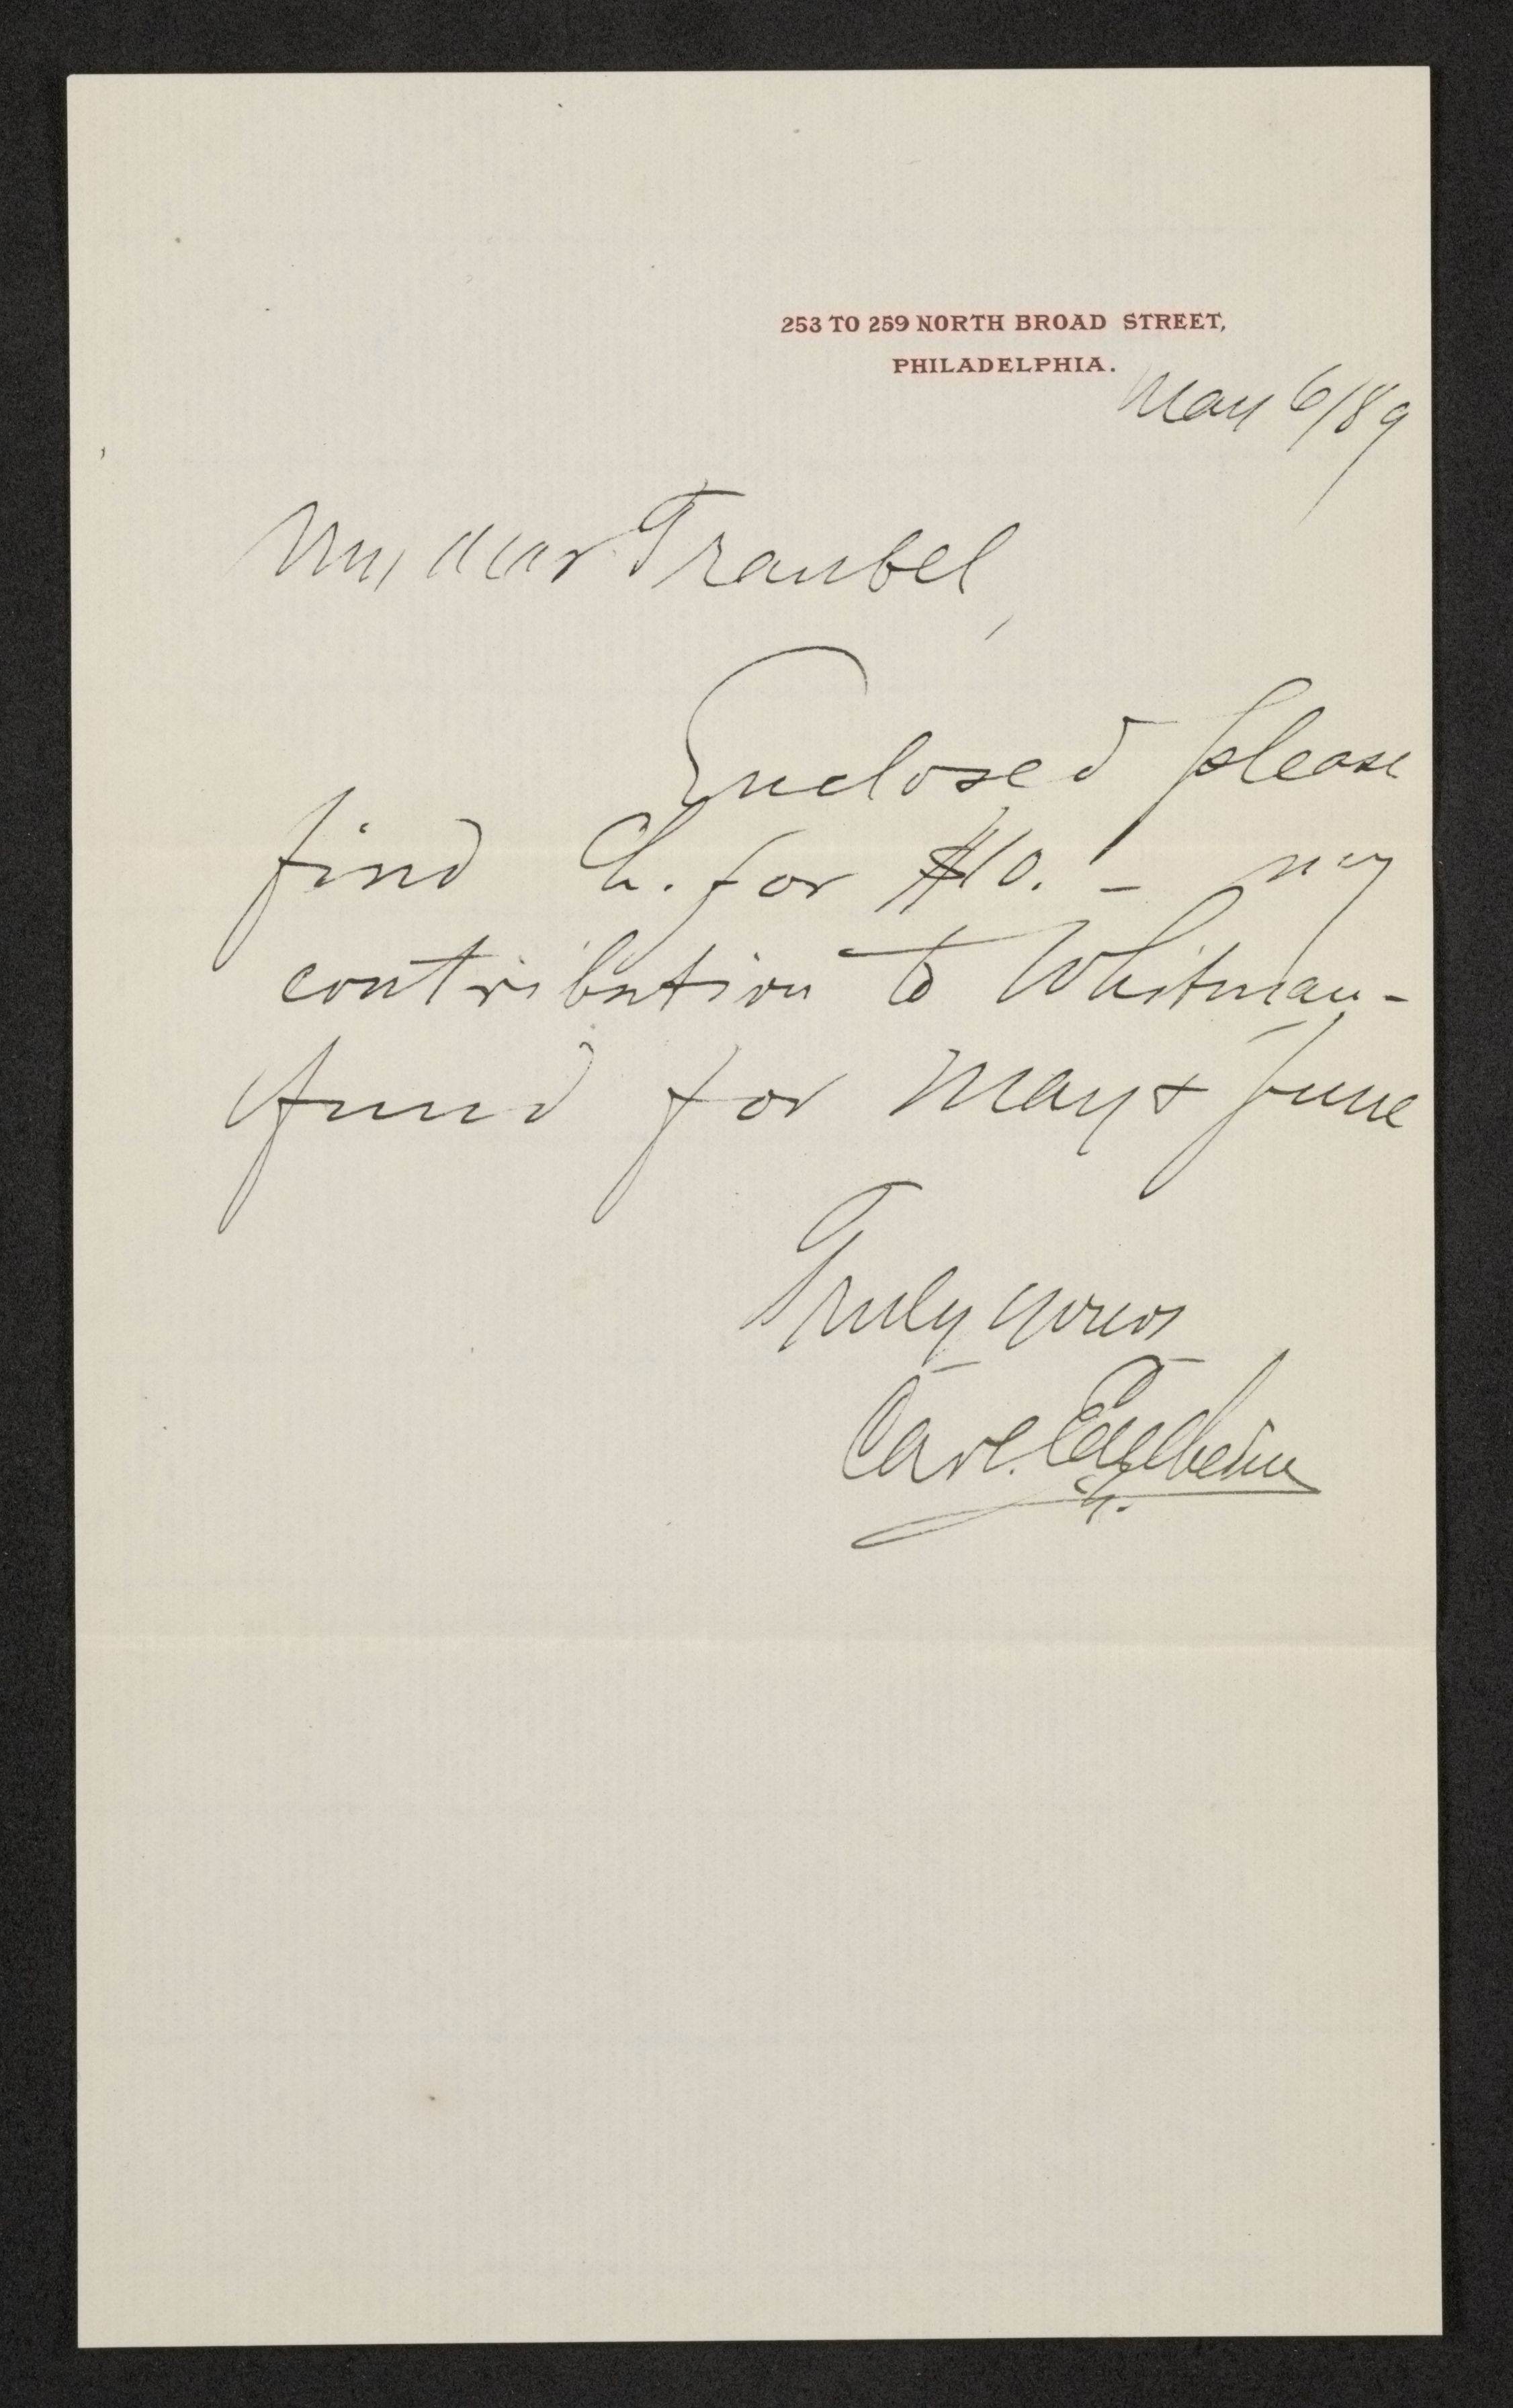 253 TO 259 NORTH BROAD STREET,
PHILADELPHIA.
May 6/89
My dear Traubel,
Enclosed please
find Ch. for $10. – my
contribution to Whitman-
fund for May & June
Truly yours
Carl Edelheim